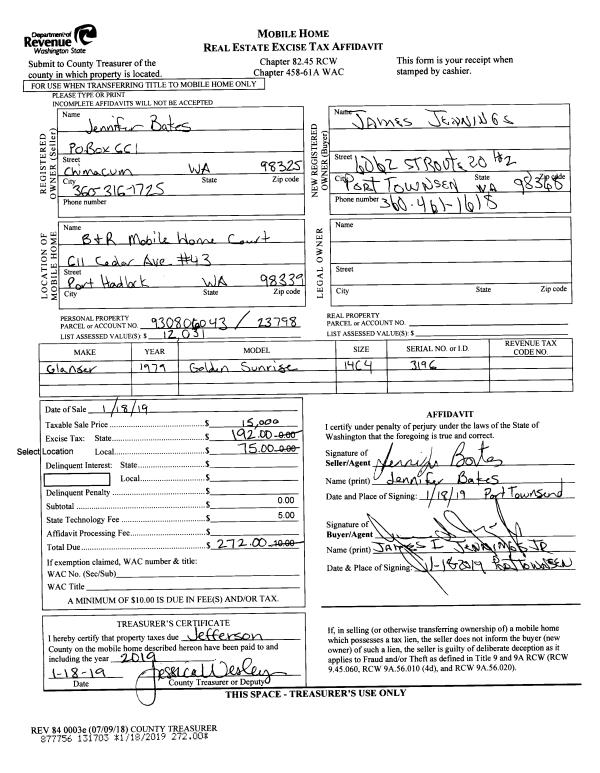 Department of
Revenue
Washington State
MOBILE HOME
REAL ESTATE EXCISE TAX AFFIDAVIT
Submit to County Treasurer of the
county in which property is located.
Chapter 82.45 RCW
Chapter 458-61A WAC
This form is your receipt when
stamped by cashier.
FOR USE WHEN TRANSFERRING TITLE TO MOBILE HOME ONLY
PLEASE TYPE OR PRINT
INCOMPLETE AFFIDAVITS WILL NOT BE ACCEPTED
REGISTERED
OWNER (Seller)
Name
Jennifer Bates
PO Box 661
Street
Chimacum WA 98325
City State Zip code
360-316-1725
Phone number
NEW REGISTERED
OWNER (Buyer)
Name
JAMES JENNINGS
Street 6062 ST ROUTE 20 #2
City PORT TOWNSEN State WA 98368 Zip code
Phone number 360-461-1618
LOCATION OF
MOBILE HOME
Name
B+R Mobile Home Court
611 Cedar Ave #43
Street
Port Hadlock WA 98339
City State Zip code
LEGAL OWNER
Name
Street
City State Zip code
PERSONAL PROPERTY
PARCEL or ACCOUNT NO. 930806043 / 23798
LIST ASSESSED VALUE(S): $ 12,031
REAL PROPERTY
PARCEL or ACCOUNT NO.
LIST ASSESSED VALUE(S): $
MAKE YEAR MODEL SIZE SERIAL NO. or I.D. REVENUE TAX
CODE NO.
Glanser 1979 Golden Sunrise 14C4 3196
Date of Sale 1/18/19
Taxable Sale Price $ 15,000
Excise Tax: State $ 192.00 0.00
Select Location Local $ 75.00 0.00
Delinquent Interest: State $
Local $
Delinquent Penalty $
Subtotal $ 0.00
State Technology Fee $ 5.00
Affidavit Processing Fee $
Total Due $ 272.00 10.00
If exemption claimed, WAC number & title:
WAC No. (Sec/Sub)
WAC Title
A MINIMUM OF $10.00 IS DUE IN FEE(S) AND/OR TAX.
AFFIDAVIT
I certify under penalty of perjury under the laws of the State of
Washington that the foregoing is true and correct.
Signature of
Seller/Agent Jennifer Bates
Name (print) Jennifer Bates
Date and Place of Signing: 1/18/19 Port Townsend
Signature of
Buyer/Agent
Name (print) JAMES E JENNINGS JR
Date & Place of Signing: 1-18-2019 PORT TOWNSEN
TREASURER'S CERTIFICATE
I hereby certify that property taxes due Jefferson
County on the mobile home described hereon have been paid to and
including the year 2019
1-18-19 Jessica Wesley
Date County Treasurer or Deputy
If, in selling (or otherwise transferring ownership of) a mobile home
which possesses a tax lien, the seller does not inform the buyer (new
owner) of such a lien, the seller is guilty of deliberate deception as it
applies to Fraud and/or Theft as defined in Title 9 and 9A RCW (RCW
9.45.060, RCW 9A.56.010 (4d), and RCW 9A.56.020).
THIS SPACE - TREASURER'S USE ONLY
REV 84 0003e (07/09/18) COUNTY TREASURER
877756 131703 *1/18/2019 272.00*